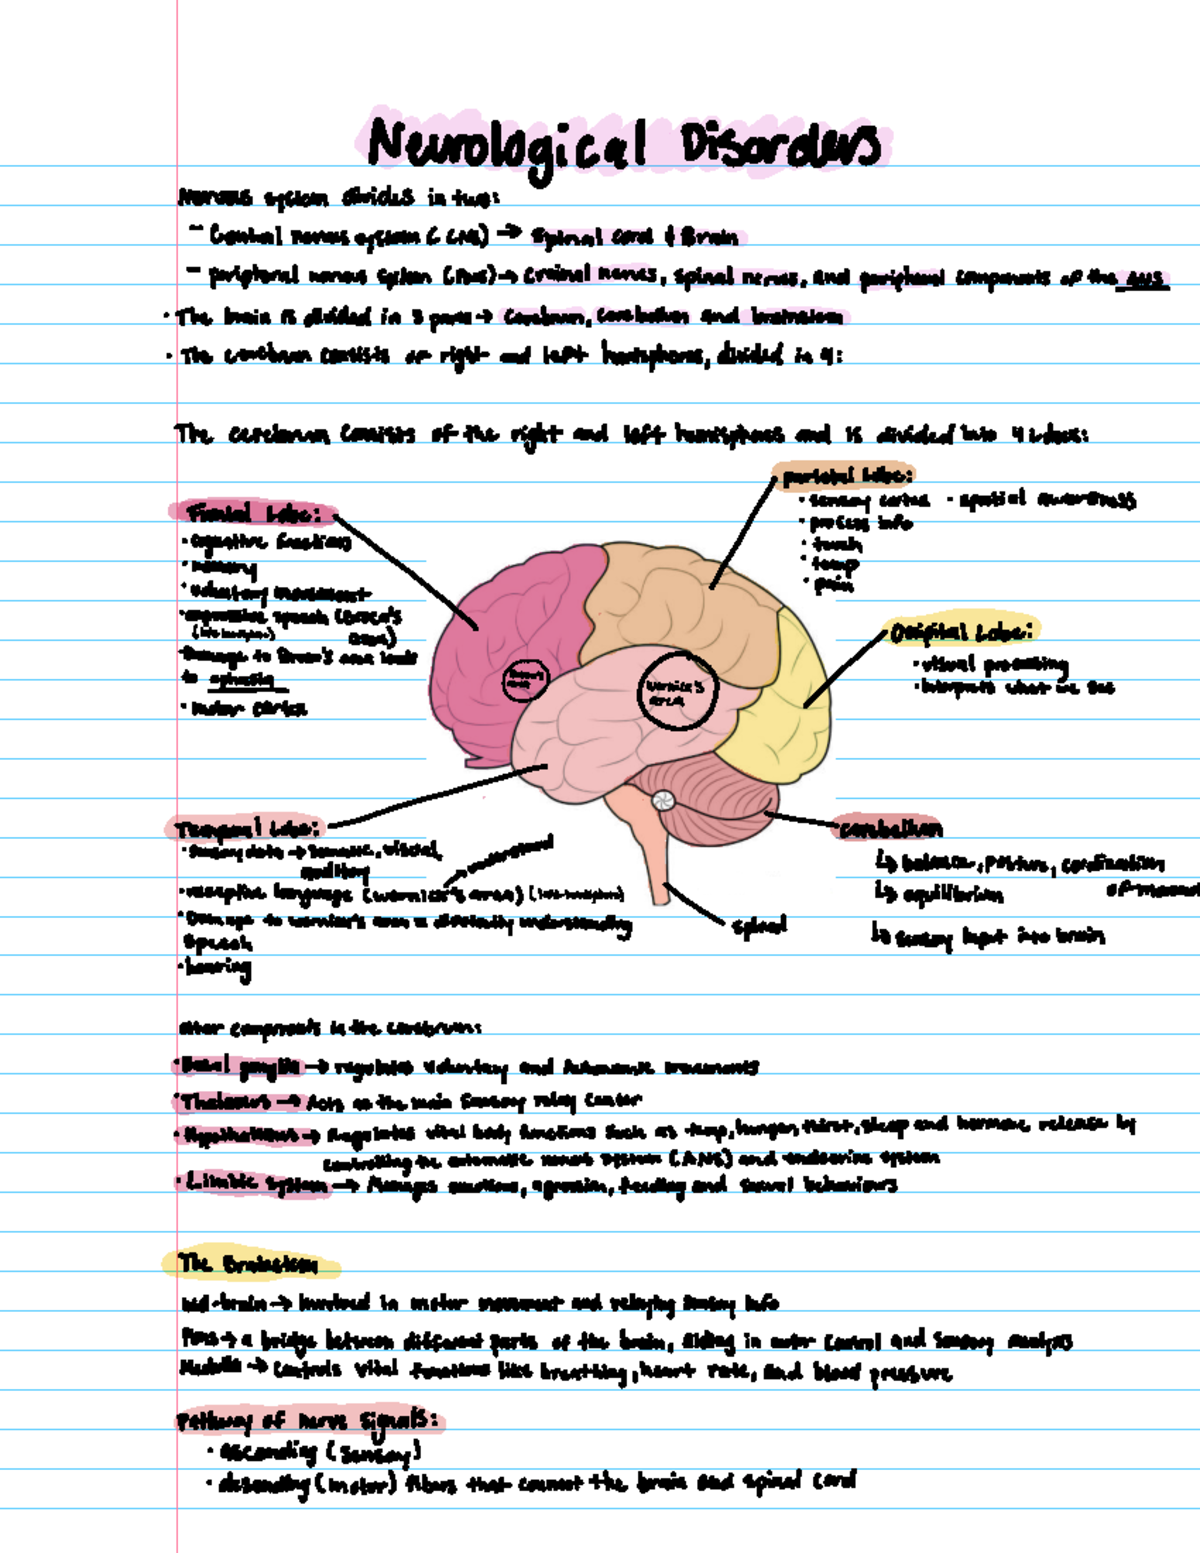 Neurological Disorders
Nervous system divides in two:
- Central nervous system (CNS) → Spinal cord & Brain
- peripheral nervous system (PNS) → Crainal nerves, spinal nerves, and peripheral components of the ANS
· The brain is divided in 3 parts → Cerebrum, cerebellum and brainstem
· The cerebrum consists or right and left hemispheres, divided in 4:
The cerebrum consists of the right and left hemispheres and is divided into 4 lobes:
parietal Lobe:
· sensory cortex · spatial awareness
· process info
· touch
· temp
· pain
Frontal Lobe:
· cognitive functions
· memory
· voluntary movement
· expressive speech (Broca's area)
(left hemisphere)
· Damage to Broca's area leads
to aphasia
· motor cortex
Broca's area
Wernice's area
Occipital Lobe:
· visual processing
· interprets what we see
Temporal Lobe:
· Sensory data → Somatic, visual,
auditory
understand
· receptive language (wernice's area) (left hemisphere)
· Damage to wernice's area = difficulty understanding
speech
· hearing
cerebellum
↳ balance, posture, cordination
of
↳ equilibrium
↳ sensory input into brain
spinal
other components in the cerebrum:
· Basal ganglia → regulates voluntary and automatic movements
· Thalamus → Acts as the main sensory relay center
· Hypothalamus → Regulates vital body functions such as temp, hunger, thirst, sleep and hormone release by
controlling the automatic nervous system (ANS) and endocrine system
· Limbic system → Manages emotions, agression, feeding and sexual behaviours
The Brainstem
mid-brain → Involved in motor movement and relaying sensory info
Pons → a bridge between different parts of the brain, aiding in motor control and sensory analysis
Medulla → Controls vital functions like breathing, heart rate, and blood pressure
Pathway of nerve signals:
· ascending (sensory)
· descending (motor) fibers that connect the brain and spinal cord